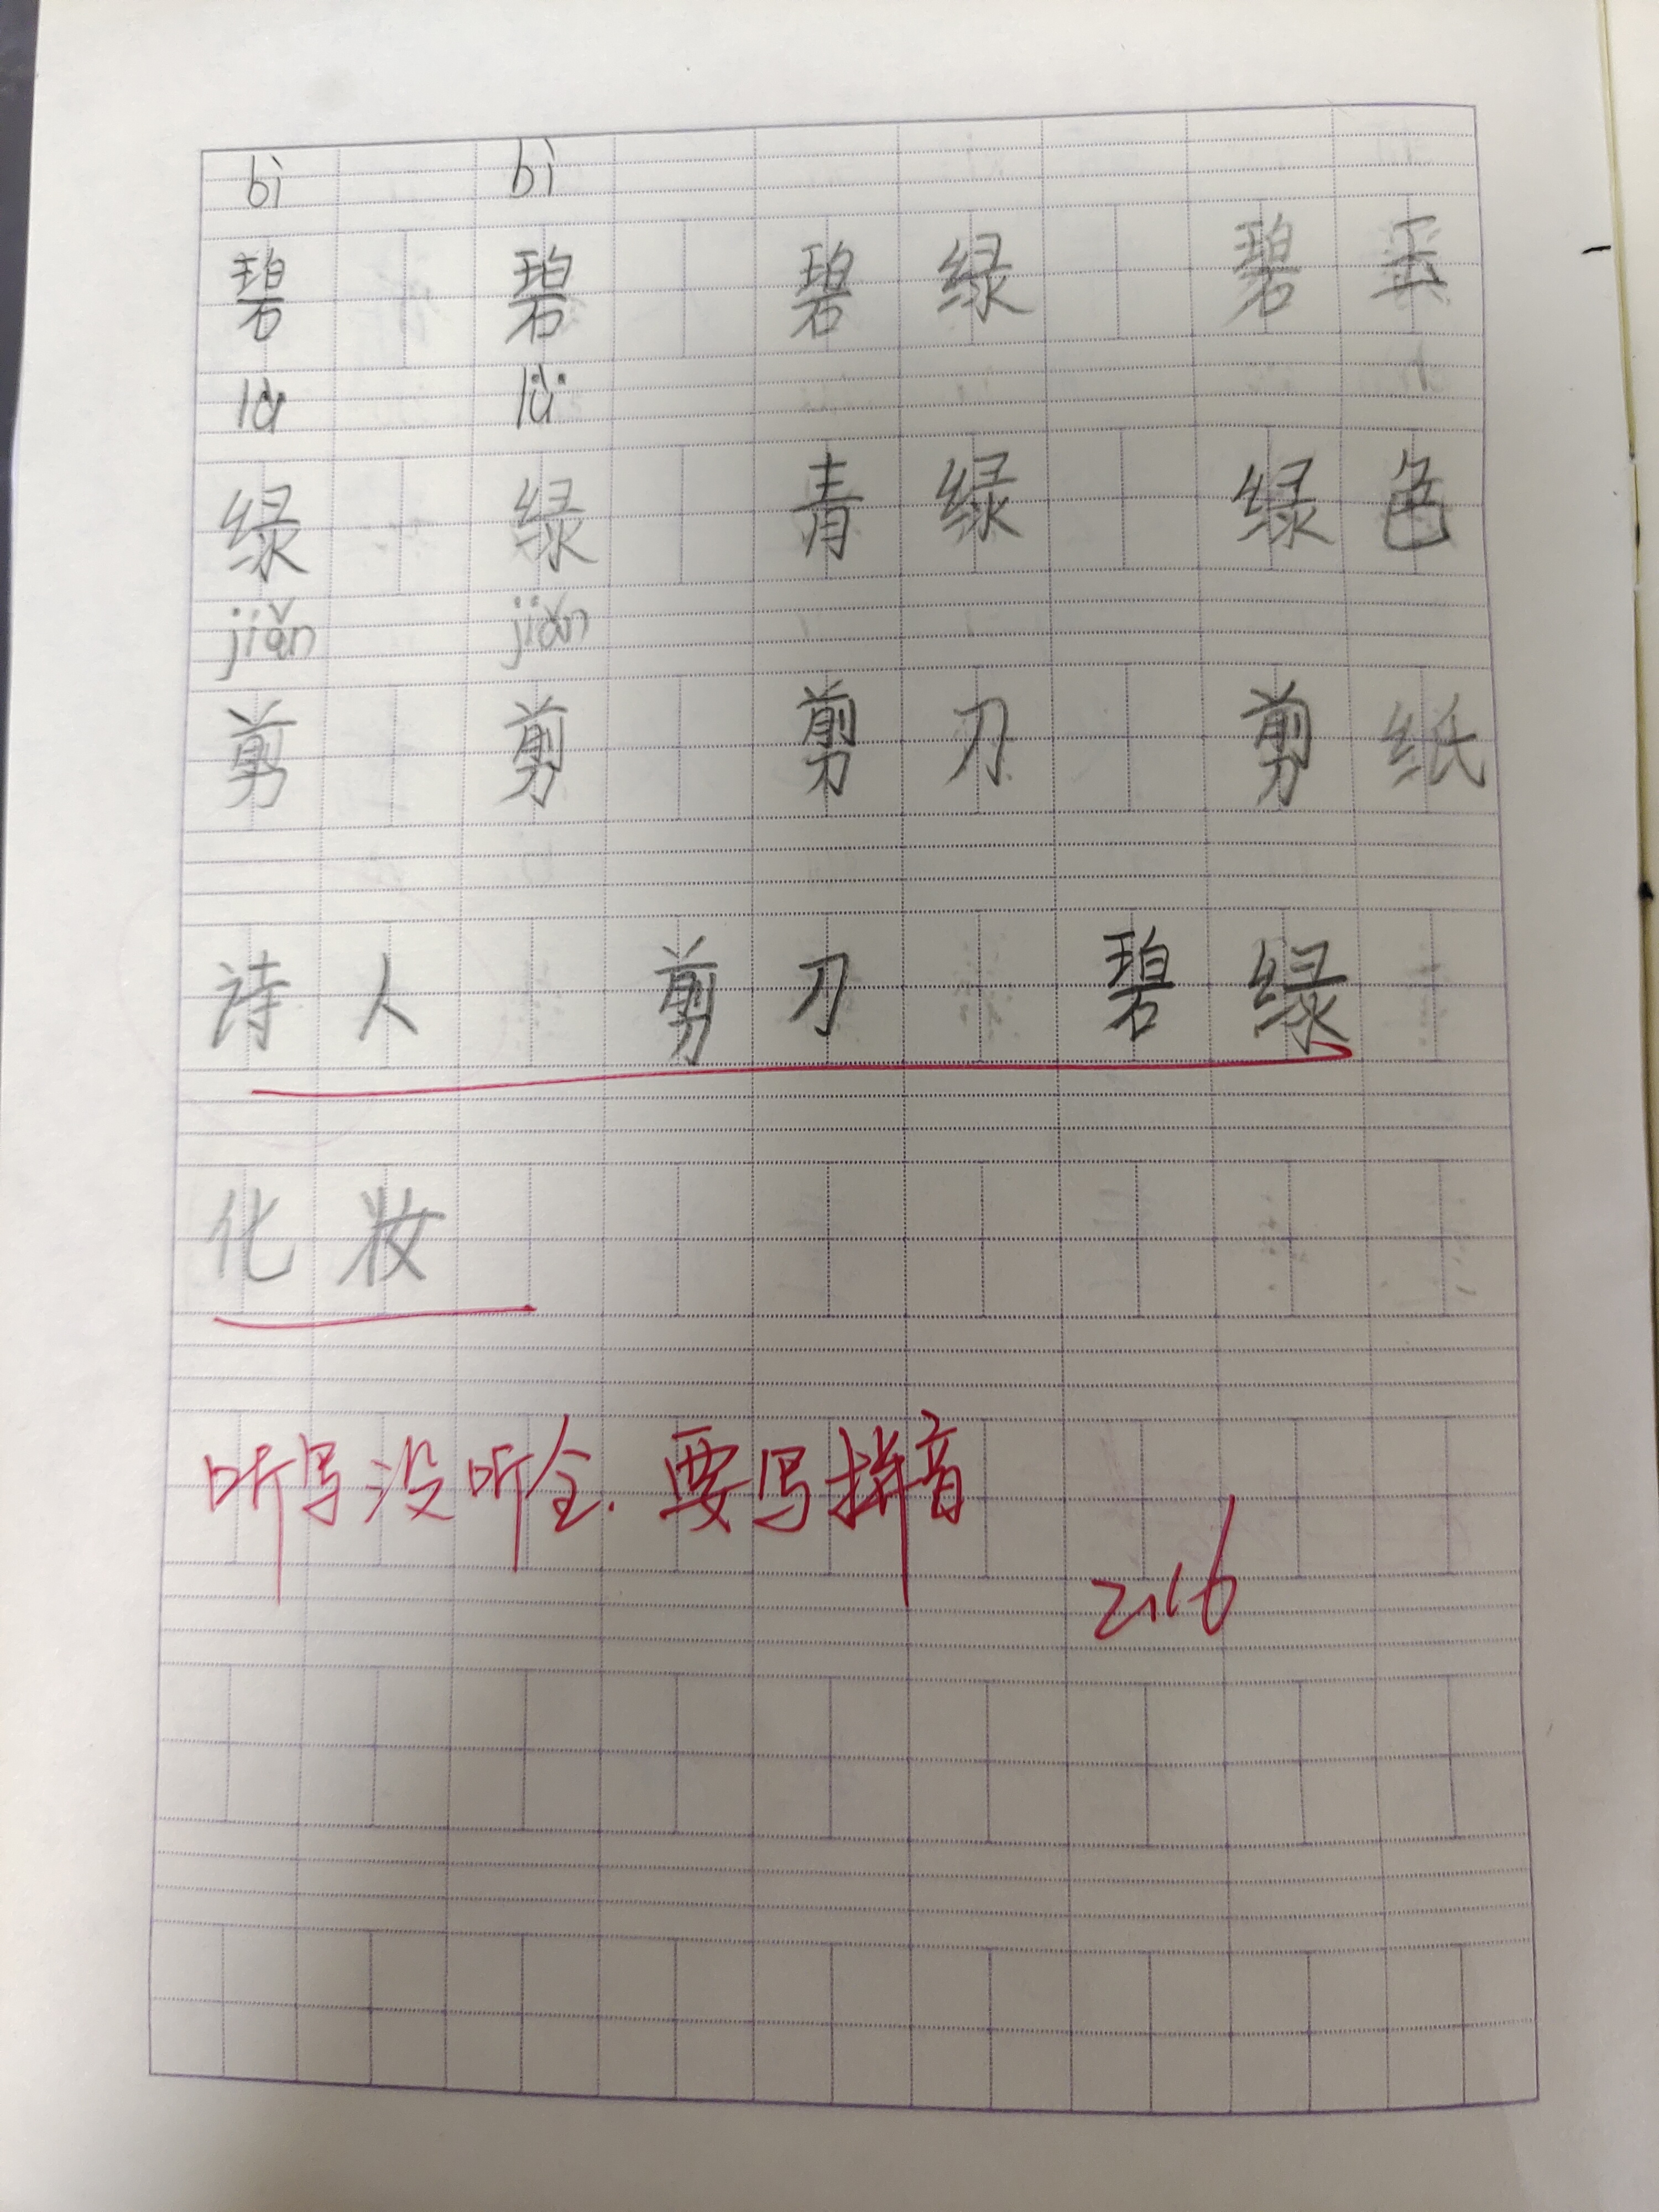 bì bì
碧 碧 碧绿 碧玉
lǜ lǜ
绿 绿 青绿 绿色
jiǎn jiǎn
剪 剪 剪刀 剪纸
诗人 剪刀 碧绿
化妆
听写没听全.要写拼音